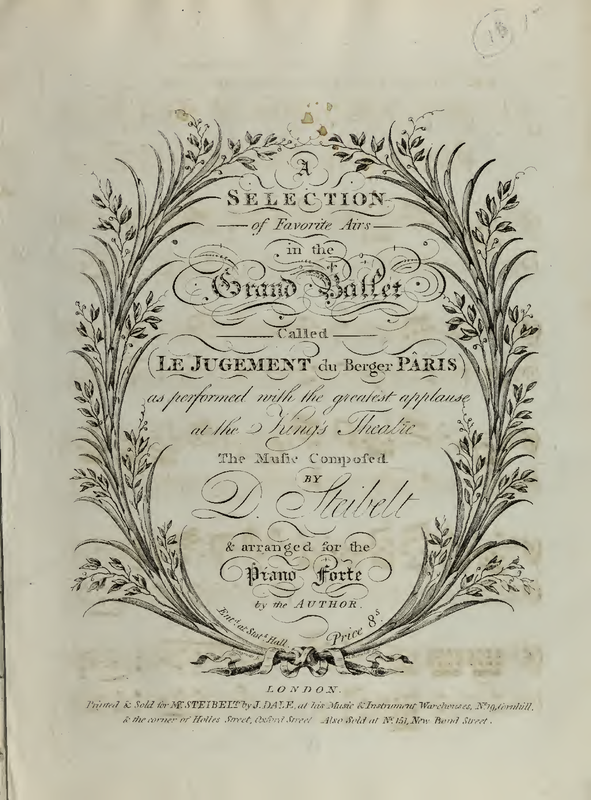 18
A
SELECTION
of Favorite Airs
in the
Grand Ballet
Called
LE JUGEMENT du Berger PÂRIS
as performed with the greatest applause
at the King's Theatre
The Muſic Compoſed
BY
D. Steibelt
& arranged for the
Piano Forte
by the AUTHOR.
Ent.d at Stat.s Hall
Price 8s
LONDON.
Printed & Sold for Mr. STEIBELT by J. DALE, at his Music & Instrument Warehouses, No. 19, Cornhill,
& the corner of Holles Street, Oxford Street Also Sold at No. 151, New Bond Street.